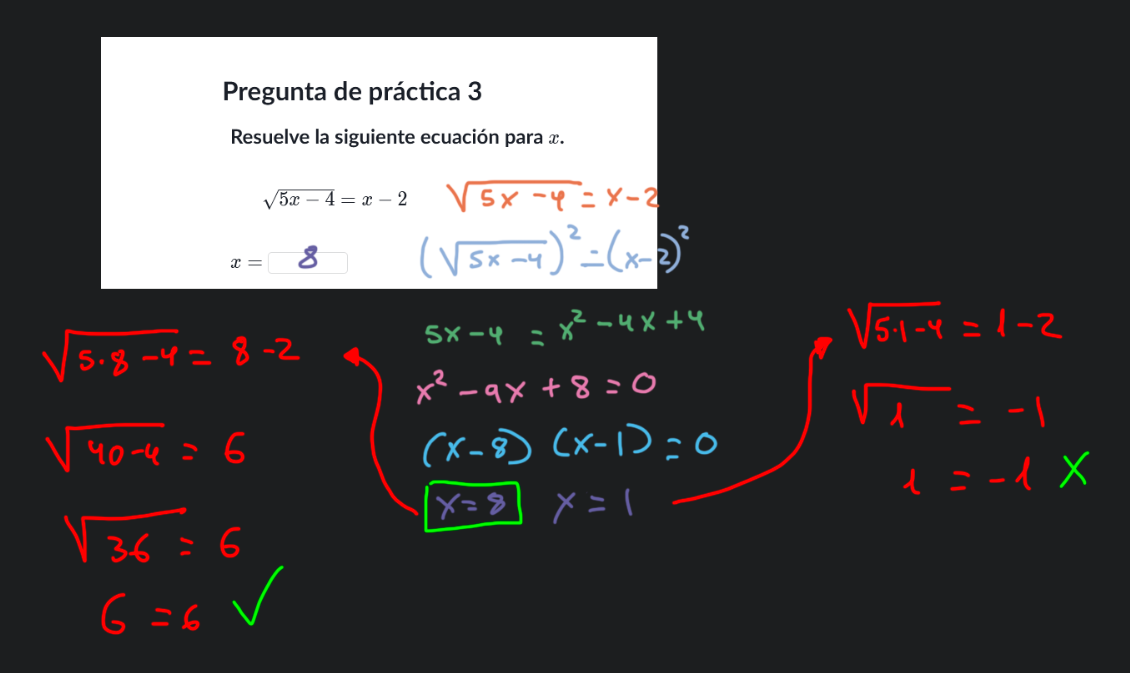 Pregunta de práctica 3
Resuelve la siguiente ecuación para x.
√(5x − 4) = x − 2
√(5x − 4) = x − 2
x = 8
(√(5x − 4))² = (x − 2)²
5x − 4 = x² − 4x + 4
x² − 9x + 8 = 0
(x − 8) (x − 1) = 0
x = 8 x = 1
√(5·8 − 4) = 8 − 2
√(40 − 4) = 6
√36 = 6
6 = 6 ✓
√(5·1 − 4) = 1 − 2
√1 = −1
1 = −1 X